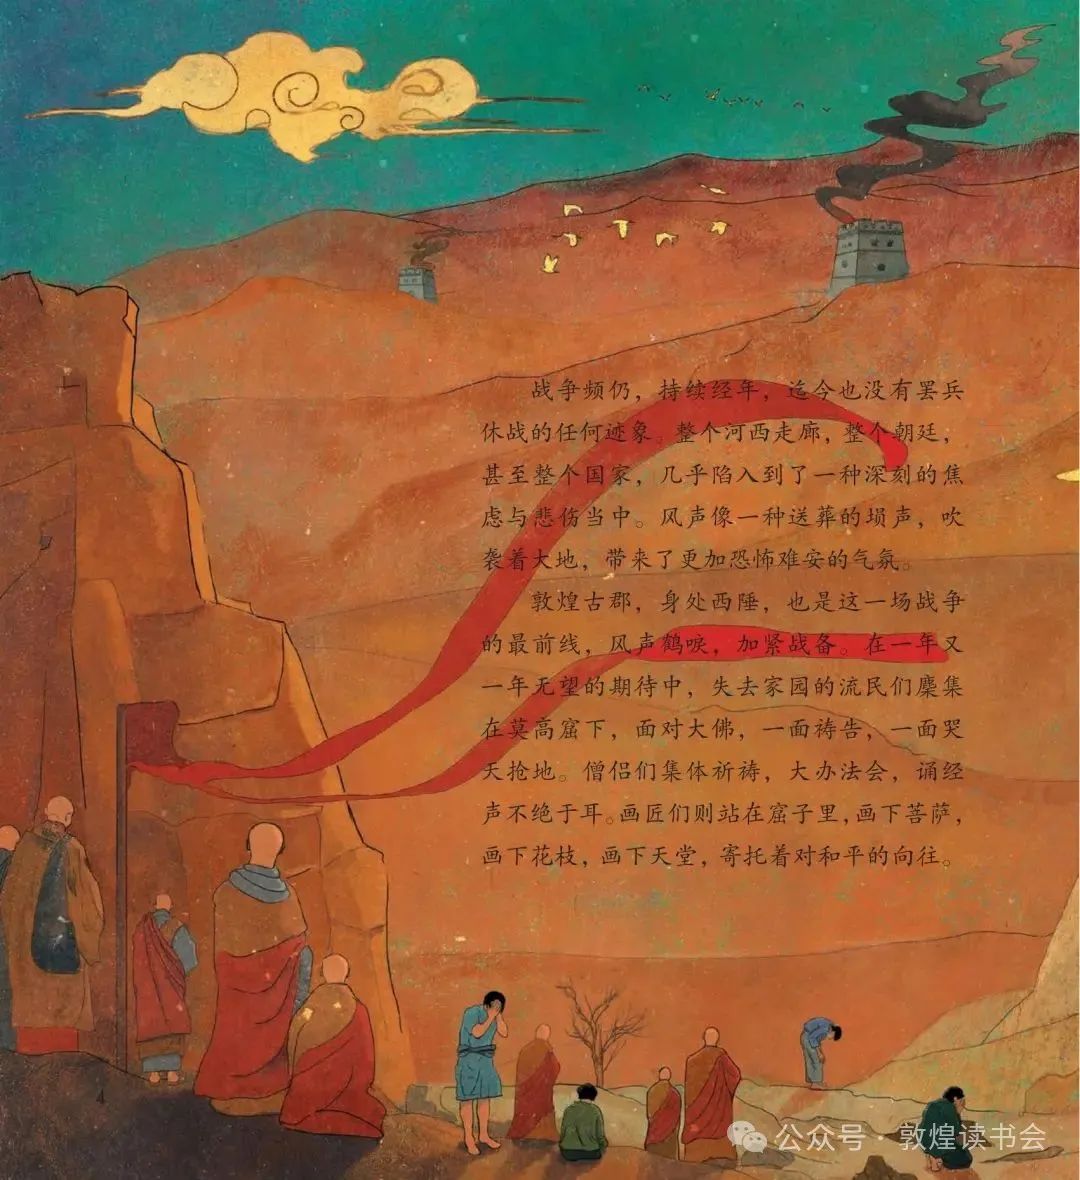 战争频仍，持续经年，迄今也没有罢兵
休战的任何迹象。整个河西走廊，整个朝廷，
甚至整个国家，几乎陷入到了一种深刻的焦
虑与悲伤当中。风声像一种送葬的埙声，吹
袭着大地，带来了更加恐怖难安的气氛。
敦煌古郡，身处西陲，也是这一场战争
的最前线，风声鹤唳，加紧战备。在一年又
一年无望的期待中，失去家园的流民们麇集
在莫高窟下，面对大佛，一面祷告，一面哭
天抢地。僧侣们集体祈祷，大办法会，诵经
声不绝于耳。画匠们则站在窟子里，画下菩萨，
画下花枝，画下天堂，寄托着对和平的向往。
4
公众号·敦煌读书会